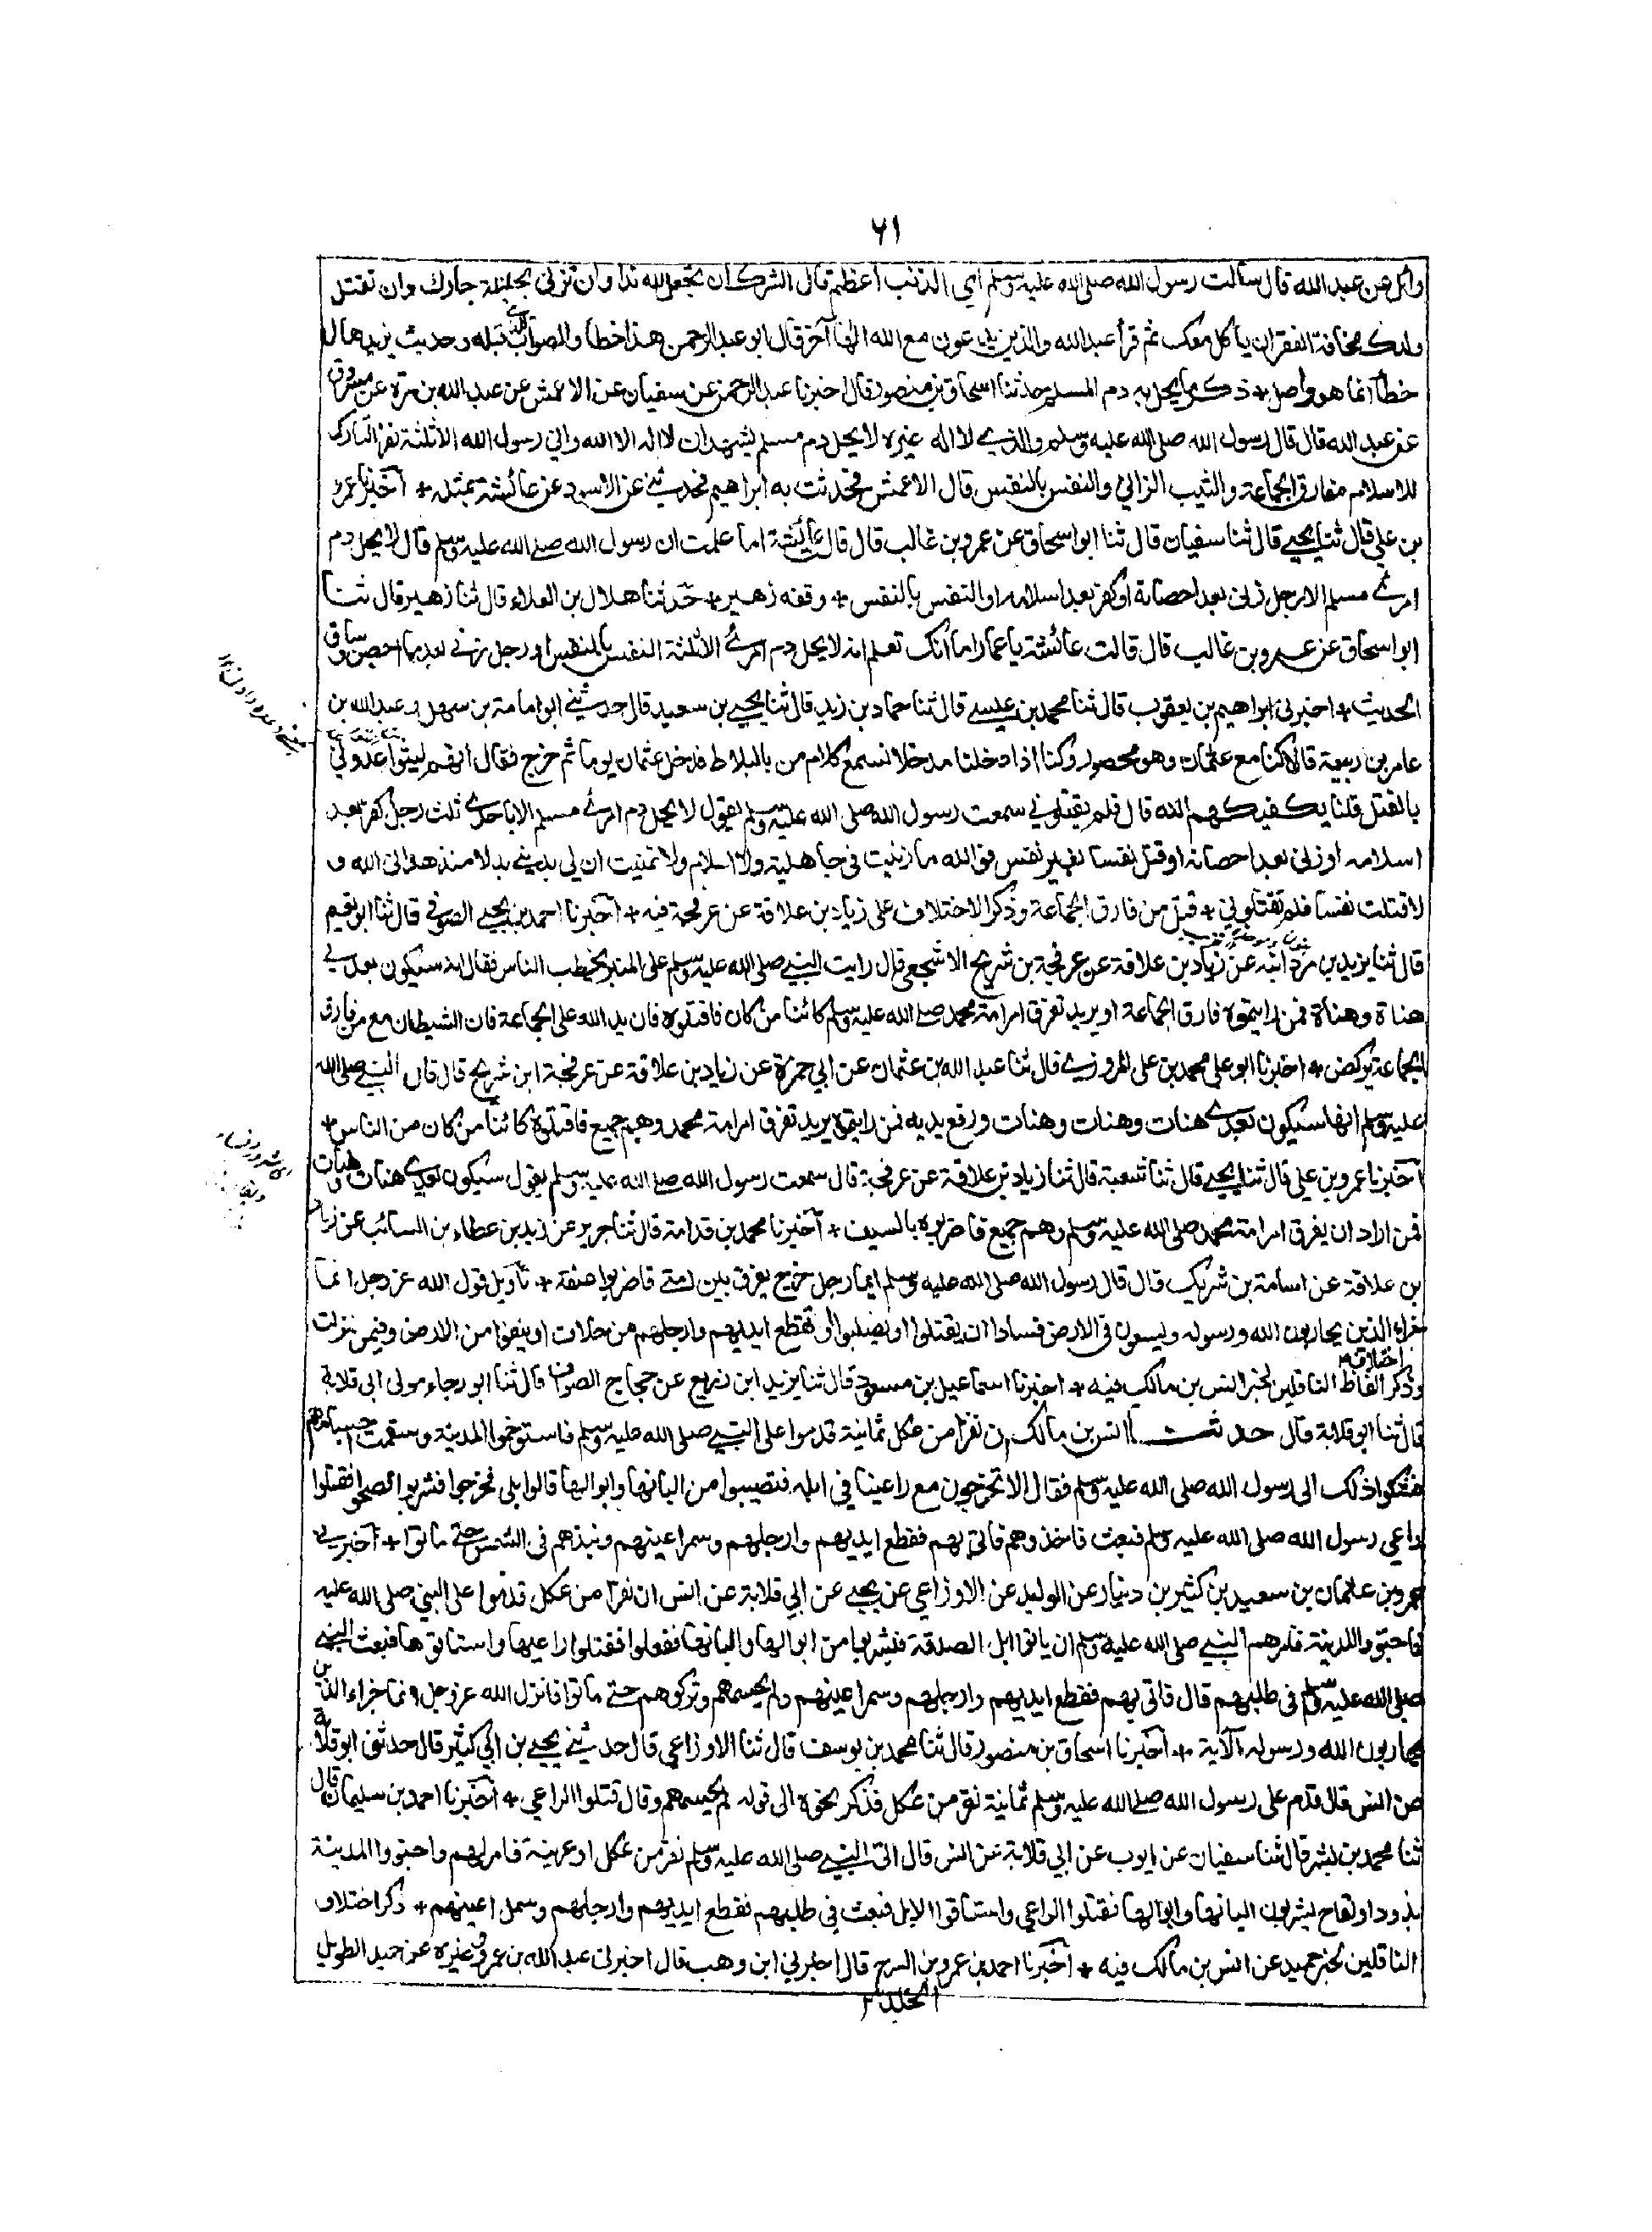 ٧١
وائل عن عبد الله قال سألت رسول الله صلى الله عليه وسلم اي الذنب اعظم قال الشرك ان تجعل لله ندا وان تزني بحليلة جارك وان تقتل
ولدك مخافة الفقر ان ياكل معك ثم قرأ عبد الله والذين يدعون مع الله الها آخر قال ابو عبد الرحمن هذا خطأ والصواب الذي قبله وحديث يزيد هذا
خطأ انما هو واصل + ذكر ما يحل به دم المسلم حدثنا اسحاق بن منصور قال اخبرنا عبد الرحمن عن سفيان عن الاعمش عن عبد الله بن مرة عن مسروق
عن عبد الله قال قال رسول الله صلى الله عليه وسلم والذي لا اله غيره لا يحل دم مسلم يشهد ان لا اله الا الله واني رسول الله الا ثلثة نفر التارك
للاسلام مفارق الجماعة والثيب الزاني والنفس بالنفس قال الاعمش فحدثت به ابراهيم فحدثني عن الاسود عن عائشة بمثله + اخبرنا عمرو
بن علي قال ثنا يحيى قال ثنا سفيان قال ثنا ابو اسحاق عن عمرو بن غالب قال قال عائشة اما علمت ان رسول الله صلى الله عليه وسلم قال لا يحل دم
امرئ مسلم الا رجل زنى بعد احصانه او كفر بعد اسلامه او النفس بالنفس + وقفه زهير + حدثنا هلال بن العلاء قال ثنا زهير قال ثنا
ابو اسحاق عن عمرو بن غالب قال قالت عائشة يا عمار اما انك تعلم انه لا يحل دم امرئ الا ثلثة النفس بالنفس او رجل زنى بعد ما احصن وساق
الحديث + اخبرني ابراهيم بن يعقوب قال ثنا محمد بن عيسى قال ثنا حماد بن زيد قال ثنا يحيى بن سعيد قال حدثني ابو امامة بن سهل وعبد الله بن
عامر بن ربيعة قالا كنا مع عثمان وهو محصور وكنا اذا دخلنا مدخلا نسمع كلام من بالبلاط فدخل عثمان يوما ثم خرج فقال انهم ليتواعدوني
بالقتل قلنا يكفيكهم الله قال فلم يقتلوني سمعت رسول الله صلى الله عليه وسلم يقول لا يحل دم امرئ مسلم الا باحدى ثلث رجل كفر بعد
اسلامه او زنى بعد احصانه او قتل نفسا بغير نفس فوالله ما زنيت في جاهلية ولا اسلام ولا تمنيت ان لي بديني بدلا منذ هداني الله و
لا قتلت نفسا فلم تقتلوني + قتل من فارق الجماعة وذكر الاختلاف على زياد بن علاقة عن عرفجة فيه + اخبرنا احمد بن يحيى الصوفي قال ثنا ابو نعيم
قال ثنا يزيد بن مردانبه عن زياد بن علاقة عن عرفجة بن شريح الاشجعي قال رايت النبي صلى الله عليه وسلم على المنبر يخطب الناس فقال انه سيكون بعدي
هناة وهناة فمن رايتموه فارق الجماعة او يريد تفرق امر امة محمد صلى الله عليه وسلم كائنا من كان فاقتلوه فان يد الله على الجماعة فان الشيطان مع من فارق
الجماعة يركض + اخبرنا ابو علي محمد بن علي المروزي قال ثنا عبد الله بن عثمان عن ابي حمزة عن زياد بن علاقة عن عرفجة ابن شريح قال قال النبي صلى الله
عليه وسلم انها ستكون بعدي هنات وهنات وهنات ورفع يديه فمن رايتموه يريد تفرق امر امة محمد وهم جميع فاقتلوه كائنا من كان من الناس +
اخبرنا عمرو بن علي قال ثنا يحيى قال ثنا شعبة قال ثنا زياد بن علاقة عن عرفجة قال سمعت رسول الله صلى الله عليه وسلم يقول ستكون بعدي هنات وهنات
فمن اراد ان يفرق امر امة محمد صلى الله عليه وسلم وهم جميع فاضربوه بالسيف + اخبرنا محمد بن قدامة قال ثنا جرير عن زيد بن عطاء بن السائب عن زياد
بن علاقة عن اسامة بن شريك قال قال رسول الله صلى الله عليه وسلم ايما رجل خرج يفرق بين امتي فاضربوا عنقه + تأويل قول الله عز وجل انما
جزاء الذين يحاربون الله ورسوله ويسعون في الارض فسادا ان يقتلوا او يصلبوا او تقطع ايديهم وارجلهم من خلاف او ينفوا من الارض وفيمن نزلت
وذكر اختلاف الفاظ الناقلين لخبر انس بن مالك فيه + اخبرنا اسماعيل بن مسعود قال ثنا يزيد ابن زريع عن حجاج الصواف قال ثنا ابو رجاء مولى ابي قلابة
قال ثنا ابو قلابة قال حدثنا انس بن مالك ان نفرا من عكل ثمانية قدموا على النبي صلى الله عليه وسلم فاستوخموا المدينة وسقمت اجسامهم
فشكوا ذلك الى رسول الله صلى الله عليه وسلم فقال الا تخرجون مع راعينا في ابله فتصيبوا من البانها وابوالها قالوا بلى فخرجوا فشربوا فصحوا فقتلوا
راعي رسول الله صلى الله عليه وسلم فبعث فاخذوهم فاتي بهم فقطع ايديهم وارجلهم وسمر اعينهم ونبذهم في الشمس حتى ماتوا + اخبرني
عمرو بن عثمان بن سعيد بن كثير بن دينار عن الوليد عن الاوزاعي عن يحيى عن ابي قلابة عن انس ان نفرا من عكل قدموا على النبي صلى الله عليه
فاجتووا المدينة فامرهم النبي صلى الله عليه وسلم ان ياتوا ابل الصدقة فيشربوا من ابوالها والبانها ففعلوا فقتلوا راعيها واستاقوها فبعث النبي
صلى الله عليه وسلم في طلبهم قال فاتي بهم فقطع ايديهم وارجلهم وسمر اعينهم ولم يحسمهم وتركوهم حتى ماتوا فانزل الله عز وجل انما جزاء الذين
يحاربون الله ورسوله الآية + اخبرنا اسحاق بن منصور قال ثنا محمد بن يوسف قال ثنا الاوزاعي قال حدثني يحيى بن ابي كثير قال حدثني ابو قلابة
عن انس قال قدم على رسول الله صلى الله عليه وسلم ثمانية نفر من عكل فذكر نحوه الى قوله لم يحسمهم وقال قتلوا الراعي + اخبرنا احمد بن سليمان قال
ثنا محمد بن بشر قال ثنا سفيان عن ايوب عن ابي قلابة عن انس قال اتى النبي صلى الله عليه وسلم نفر من عكل او عرينة فامر لهم واجتووا المدينة
بذود او لقاح يشربون البانها وابوالها فقتلوا الراعي واستاقوا الابل فبعث في طلبهم فقطع ايديهم وارجلهم وسمل اعينهم + ذكر اختلاف
الناقلين لخبر حميد عن انس بن مالك فيه + اخبرنا احمد بن عمرو بن السرح قال اخبرني ابن وهب قال اخبرني عبد الله بن عمر وغيره عن حميد الطويل